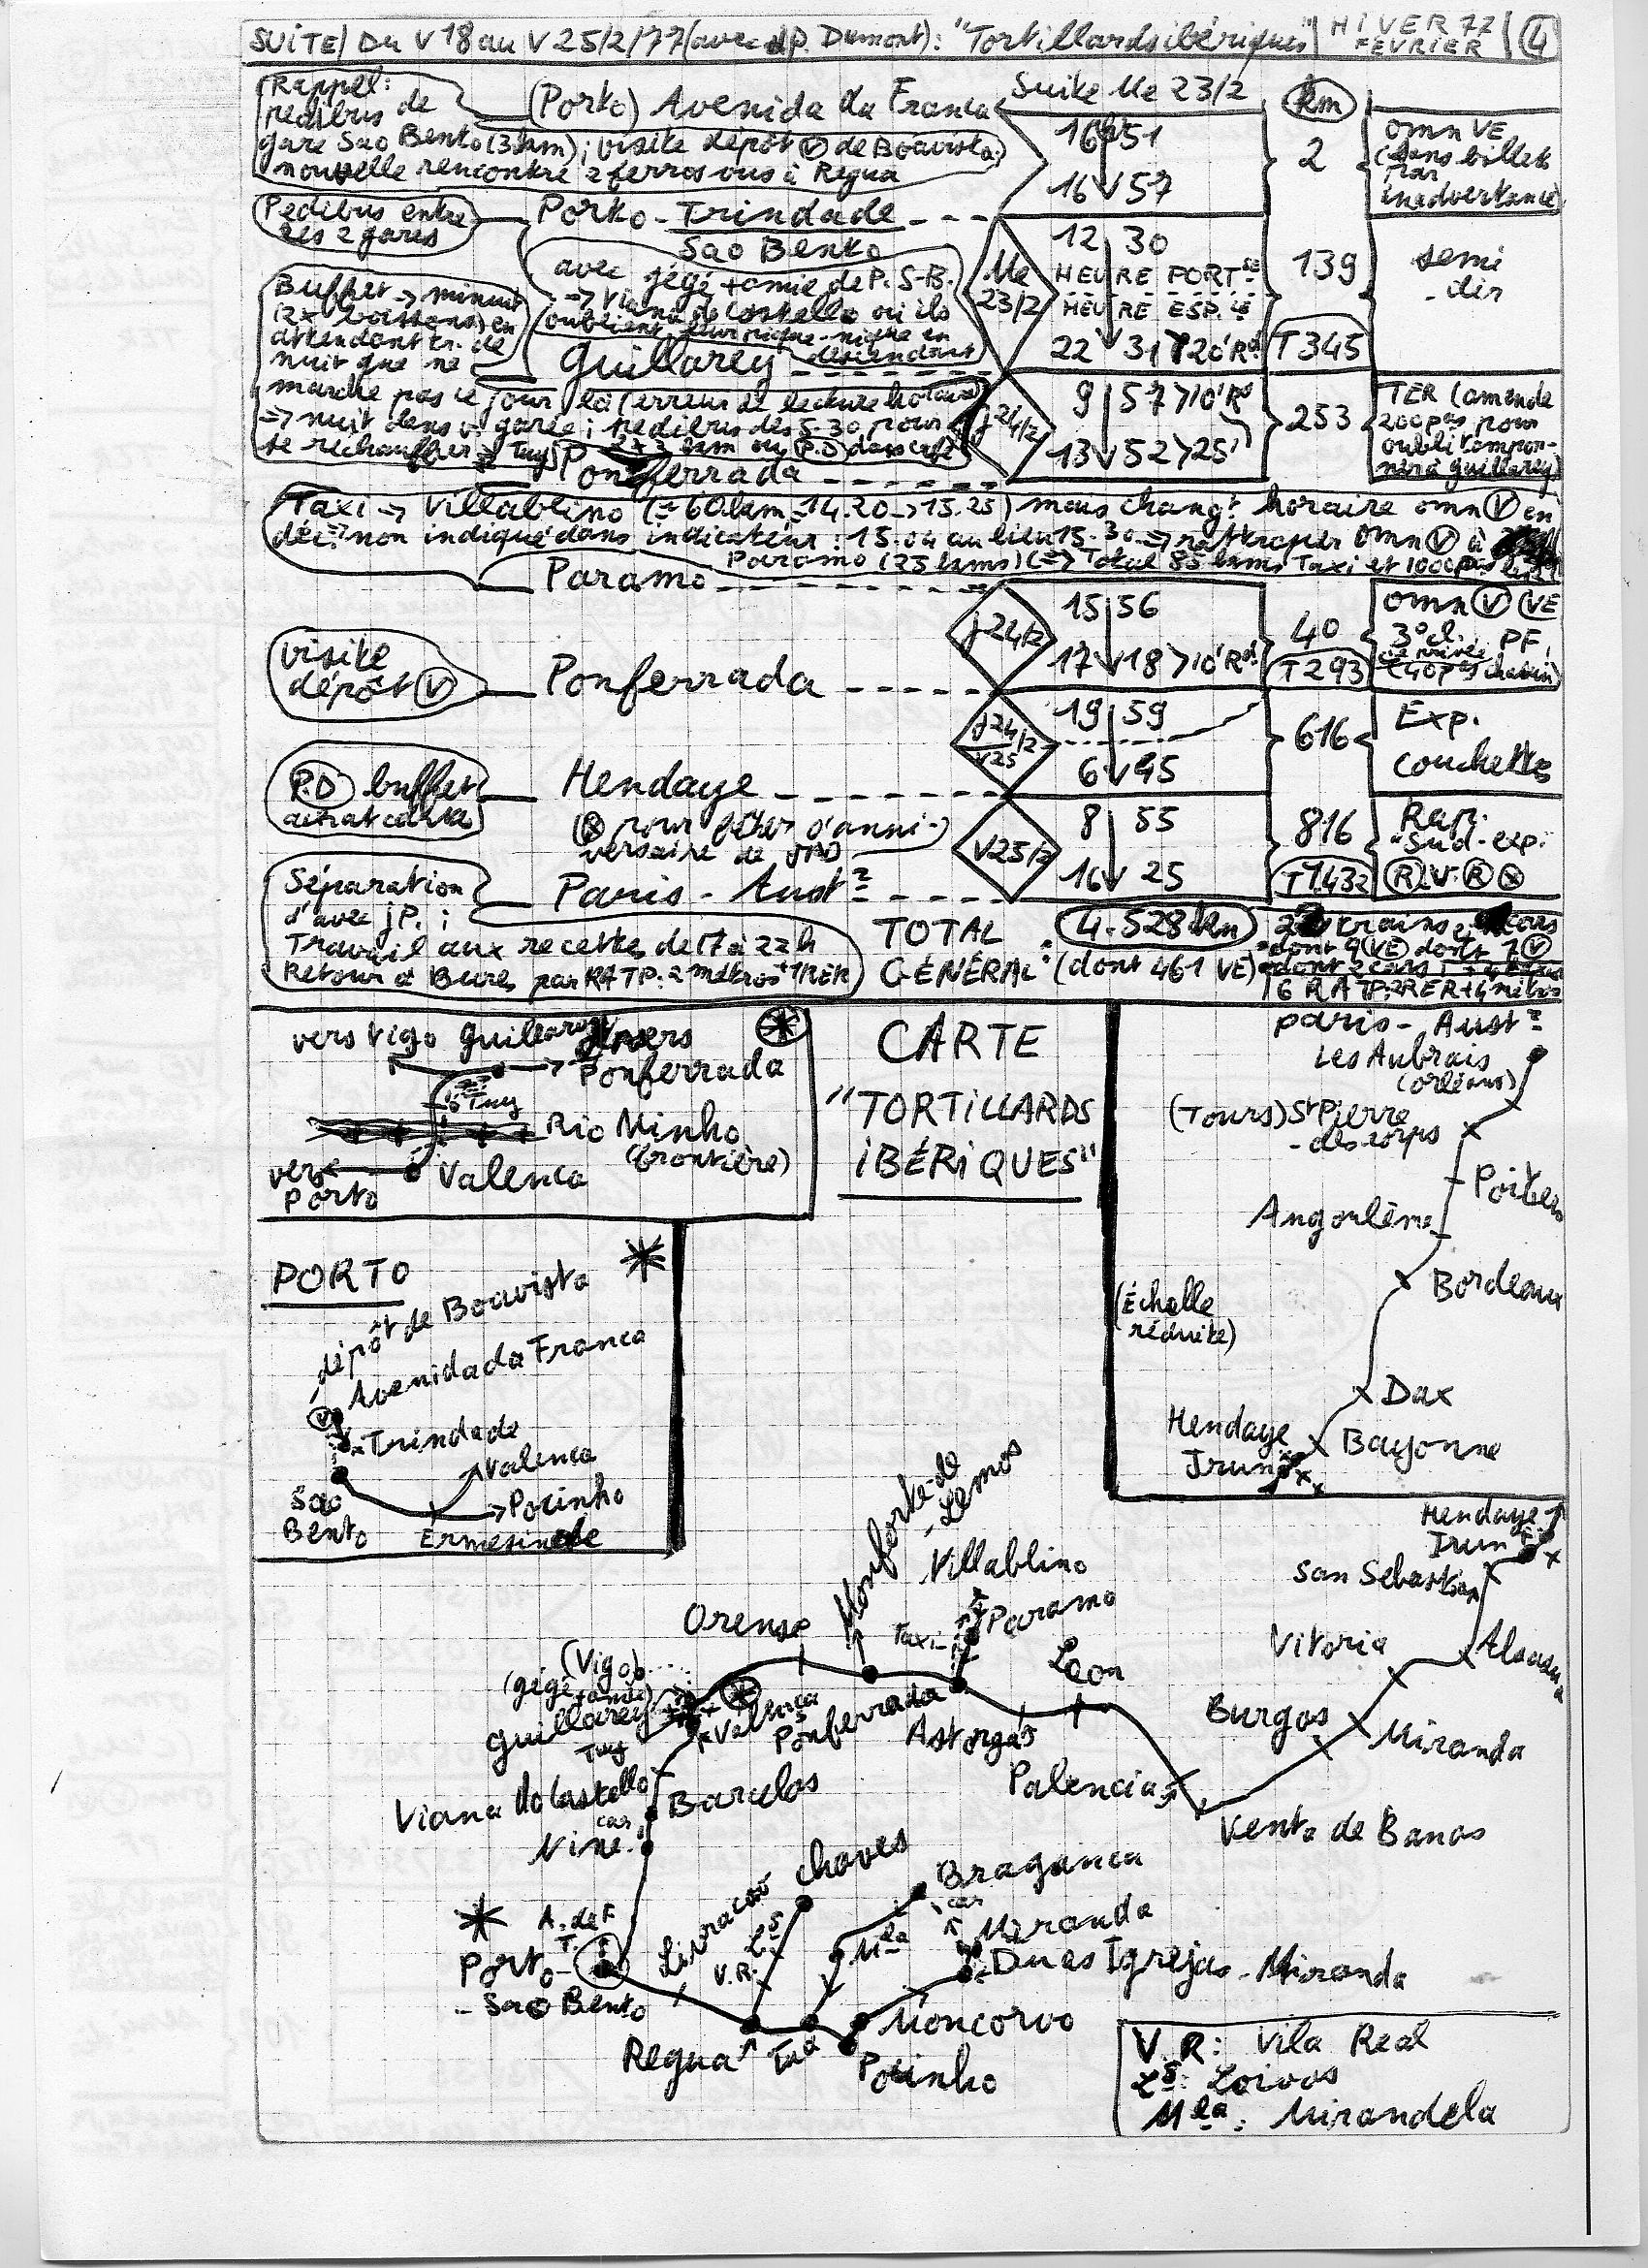 SUITE/ DU V 18 au V 25/2/77 (avec JP. Dumont): "Tortillards ibériques" / HIVER 77 FÉVRIER / 4
Rappel: pedibus de gare Sao Bento (3 km); visite dépôt V de Boavista; nouvelle rencontre 2 ferrosvus à Regua
(Porto) Avenida da Franca
Suite Me 23/2
km
16h51
16 57
2
omn VE (sans billets par inadvertance)
Pedibus entre les 2 gares
Porto - Trindade
Sao Bento
avec gégé + amie de P. S-B. → Viana do Castello où ils oublient leur pique-nique en descendant
Me 23/2
12 30
HEURE PORTSE
HEURE ESP.LE
22 31 > 20' Rd
139
T 345
semi-dir
Buffet → minuit (2x boissons) en attendant tr. de nuit que ne marche pas ce jour là (erreur de lecture horaire) → nuit dans v. garée; pedibus dès 5.30 pour se réchauffer → Tuy
km ou P.D dans café
Guillarey
j 24/2
9 57 > 10' Rd
13 52 > 25'
253
TER (amende 200 pas pour oubli tampon- nera guillarey)
Ponferrada
Taxi → Villablino (= 60 km = 14.20 → 15.25) mais changt horaire omn V en
déc. non indiqué dans indicateur: 15.04 au lieu 15.30 → rattraper omn V à
Paramo (25 kms) (=> Total 85 kms Taxi et 1000 pas
Paramo
j 24/2
15 56
17 18 > 10' Rd
40
T 293
omn V (VE 3° cl. PF,
(40 pas chacun)
visite dépôt V
Ponferrada
j 24/2
V25
19 59
6 45
616
Exp. couchettes
P.D buffet achat cartes
Hendaye
pour fêter d'anni-
versaire de
V25/2
8 55
16 25
816
T 1432
Rap. "Sud-exp."
R V R
Séparation d'avec JP.;
Travail aux recettes de 17 à 22h
Retour à Bures par RATP: 2 métros + 1 RER
Paris - Austz
TOTAL GÉNÉRAL: 4.528 km
(dont 461 VE)
trains
dont 9 VE dont 7 V
dont 2 cars
6 RATP: 2 RER + 4 métros
vers Vigo
Guillarey
vers Ponferrada
Tuy
Rio Minho (frontière)
vers Porto
Valenca
CARTE
"TORTILLARDS
IBÉRIQUES"
Paris - Austz
Les Aubrais (Orléans)
(Tours) St Pierre
- des corps
Poitiers
Angoulême
Bordeaux
(Échelle réduite)
Dax
Bayonne
Hendaye
Irun
PORTO
dépôt de Boavista
Avenida da Franca
V
Trindade
Valenca
→ Pocinho
Sao Bento
Ermesinde
Hendaye
Irun
San Sebastian
Alsasua
Vitoria
Miranda
Burgos
Venta de Banos
Palencia
Leon
Astorga
Ponferrada
Taxi
Paramo
Villablino
Monforte-de
- Lemos
Orense
(Vigo)
(gégé + amie)
Guillarey
Tuy
Valenca
Viana do Castello
car
Barcelos
Nine
A. de F.
T.
Porto
- Sao Bento
Livracao
V.R.
Ls
Chaves
Mla
Braganca
car
Miranda
Duas Igrejas - Miranda
Moncorvo
Regua
Tua
Pocinho
V.R: Vila Real
Ls: Loivos
Mla: Mirandela